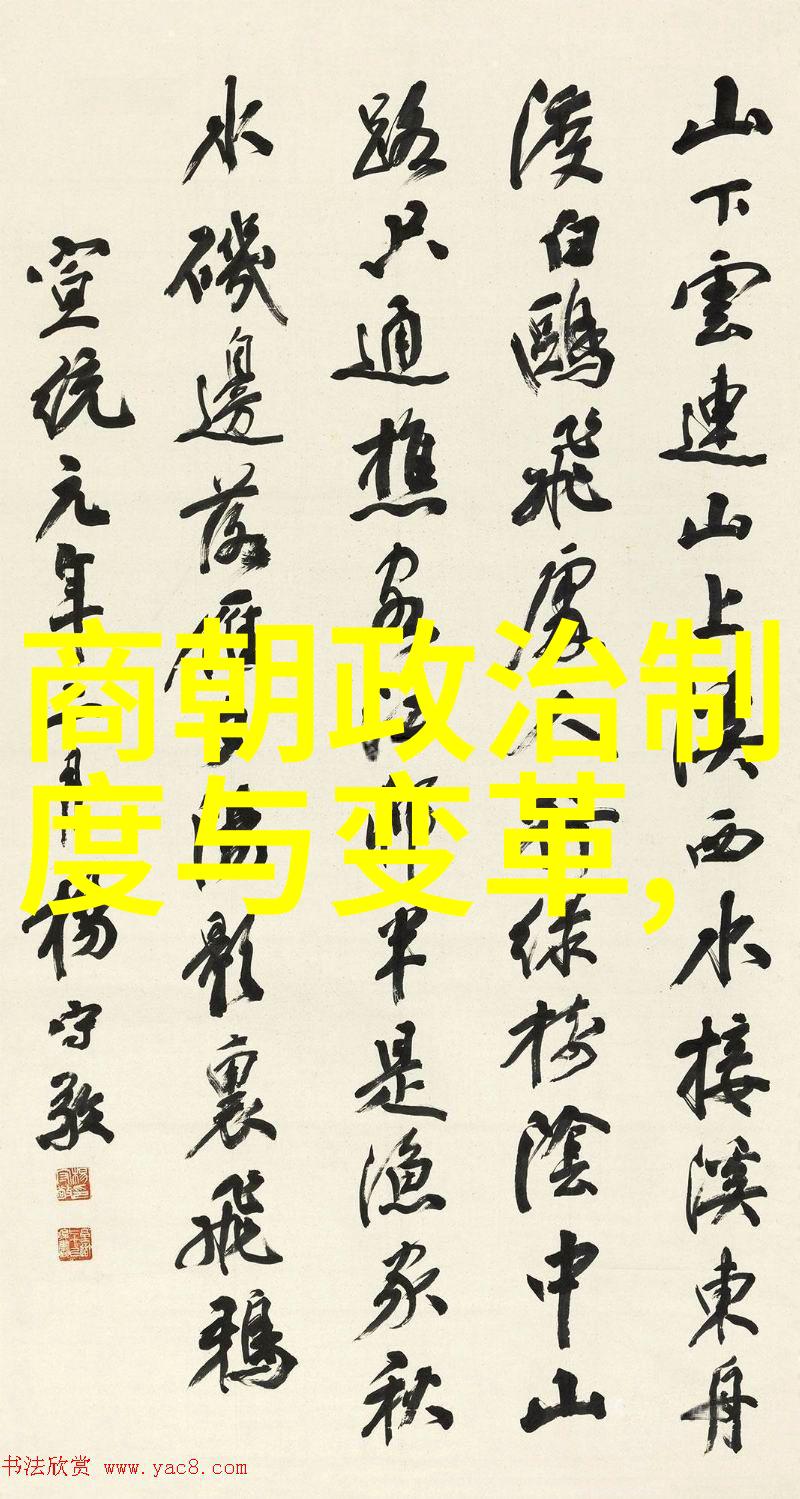 山下雲連山上溪西水接溪東舟
渡白鷗飛處人行綠樹陰中山
路只通樵客江村半是漁家秋
水磯邊落雁夕陽影裏飛鴉
宣統元年 楊守敬
商朝政治制
度与变革，
书法欣赏 www.yac8.com